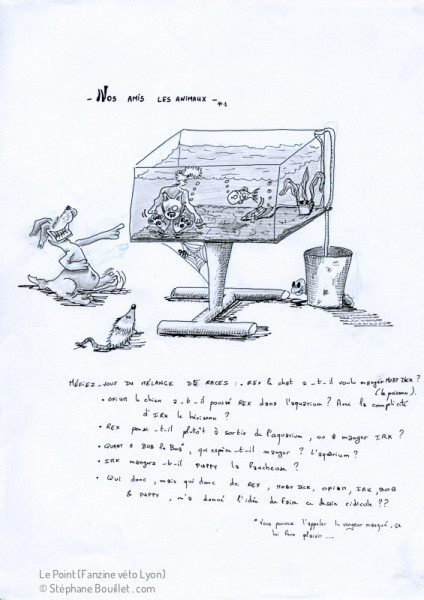 - Nos amis les animaux - #1
Méfiez-vous du mélange DE races : • Rex le chat a-t-il voulu manger Moby Dick ?
(le poisson).
• Opium le chien a-t-il poussé Rex dans l'aquarium ? Avec la complicité
d'Irk le hérisson ?
• Rex pense-t-il plutôt à sortir de l'aquarium, ou à manger Irk ?
• Quant à Bob le Boa*, qui espère-t-il manger ? L'aquarium ?
• Irk mangera-t-il Puppy la faucheuse ?
• Qui donc, mais qui donc de Rex, Moby Dick, Opium, Irk, Bob
& Puppy, m'a donné l'idée de faire ce dessin ridicule ??
* Vous pouvez l'appeler le vengeur masqué, ça
lui fera plaisir ...
Le Point (Fanzine véto Lyon)
© Stéphane Bouillet . com